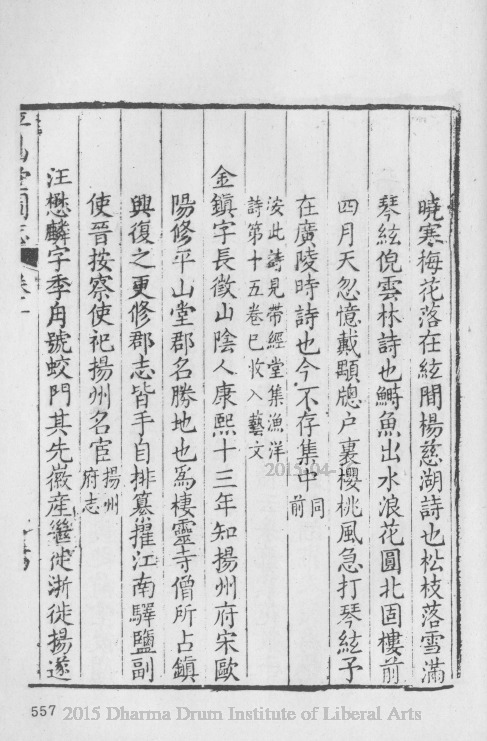 曉寒梅花落在絃間楊慈湖詩也松枝落雪滿
琴絃倪雲林詩也鰣魚出水浪花圓北固樓前
四月天忽憶戴顒牕户裏櫻桃風急打琴絃予
在廣陵時詩也今不存集中同前
按此詩見帶經堂集漁洋
詩第十五卷已收入藝文
金鎮字長徵山陰人康熙十三年知揚州府宋歐
陽修平山堂郡名勝地也爲棲靈寺僧所占鎮
興復之更修郡志皆手自排纂擢江南驛鹽副
使晉按察使祀揚州名宦揚州府志
汪懋麟字季甪號蛟門其先徽産繼徙浙徙揚遂
平山堂圖志
卷十
557 2015 Dharma Drum Institute of Liberal Arts
2015/04-